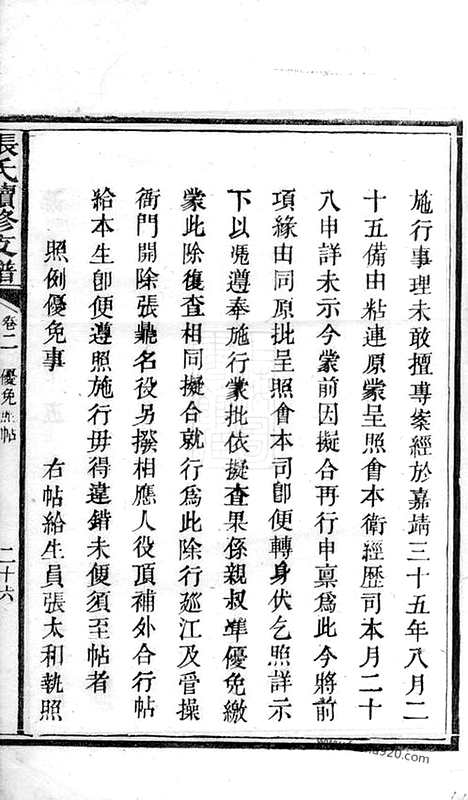 施行事理未敢擅專案經於嘉靖三十五年八月二
十五備由粘連原蒙呈照會本衛經歷司本月二十
八申詳未示今蒙前因擬合再行申稟爲此今將前
項緣由同原批呈照會本司卽便轉身伏乞照詳示
下以凴遵奉施行蒙批依擬查果係親叔準優免繳
蒙此除復查相同擬合就行爲此除行廵江及管操
衙門開除張鼎名役另撥相應人役頂補外合行帖
給本生卽便遵照施行毋得違錯未便須至帖者
照例優免事　右帖給生員張太和執照
張氏續修支譜
卷二　優免照帖
二十六